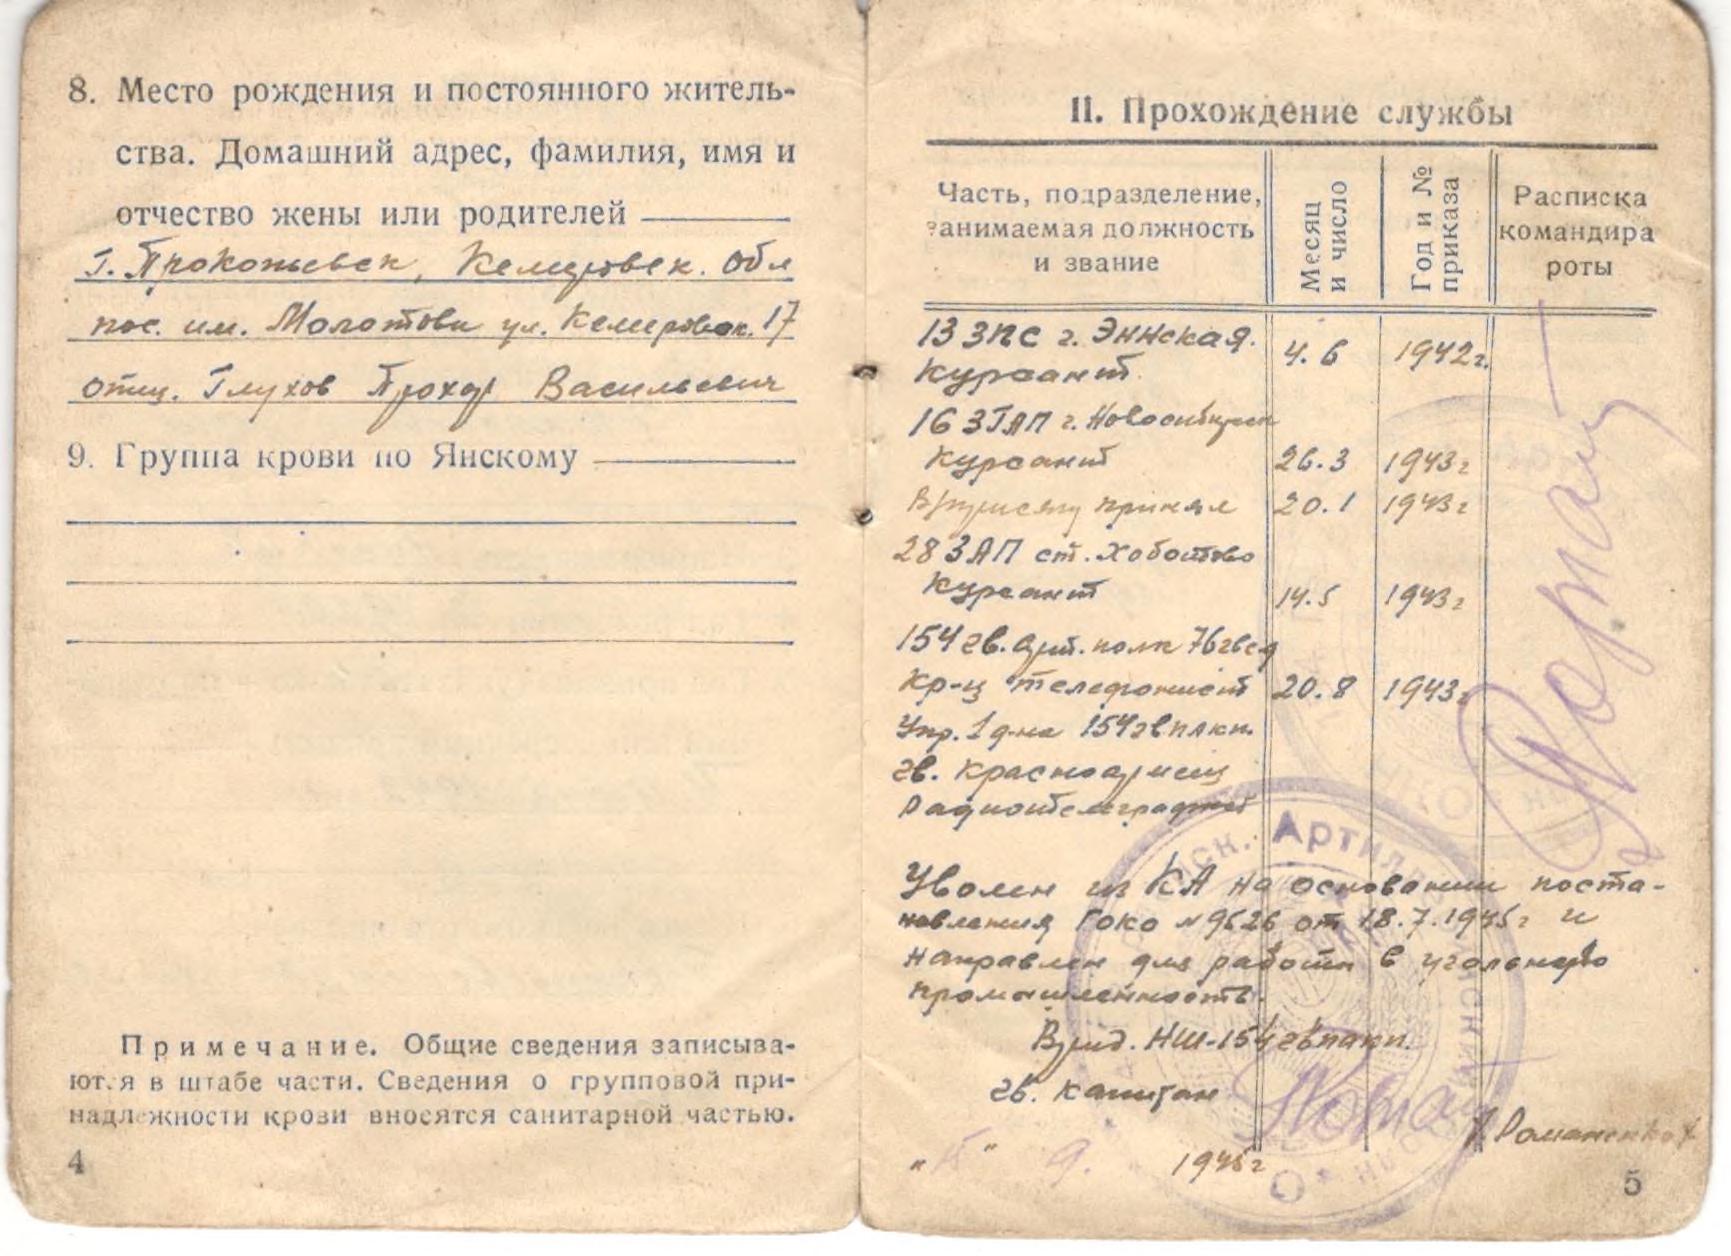 8. Место рождения и постоянного житель-
ства. Домашний адрес, фамилия, имя и
отчество жены или родителей
г. Прокопьевск, Кемеровск. обл
пос. им. Молотова ул. Кемеровск. 17
отец. Глухов Прохор Васильевич
9. Группа крови по Янскому
Примечание. Общие сведения записыва-
ются в штабе части. Сведения о групповой при-
надлежности крови вносятся санитарной частью.
4
II. Прохождение службы
Часть, подразделение, занимаемая должность и звание
Месяц и число
Год и № приказа
Расписка командира роты
13 ЗПС г. Эннская.
Курсант. 4.6 1942г.
16 ЗГАП г. Новосибирск
Курсант 26.3 1943г
Вприсягу принял 20.1 1943г
28 ЗАП ст. Хоботово
Курсант 14.5 1943г
154 гв. арт. полк 76гвсд
Кр-ц телефонист 20.8 1943г
Упр. 1 д-на 154гв
гв. красноармеец
Радиотелеграфист
Уволен из КА на основании поста-
новления ГОКО № 9526 от 18.7.1945г и
направлен для работы в угольную
промышленность.
Врид. НШ-154
гв. капитан
/Романенко/
" " 9. 1945г
Артил
5